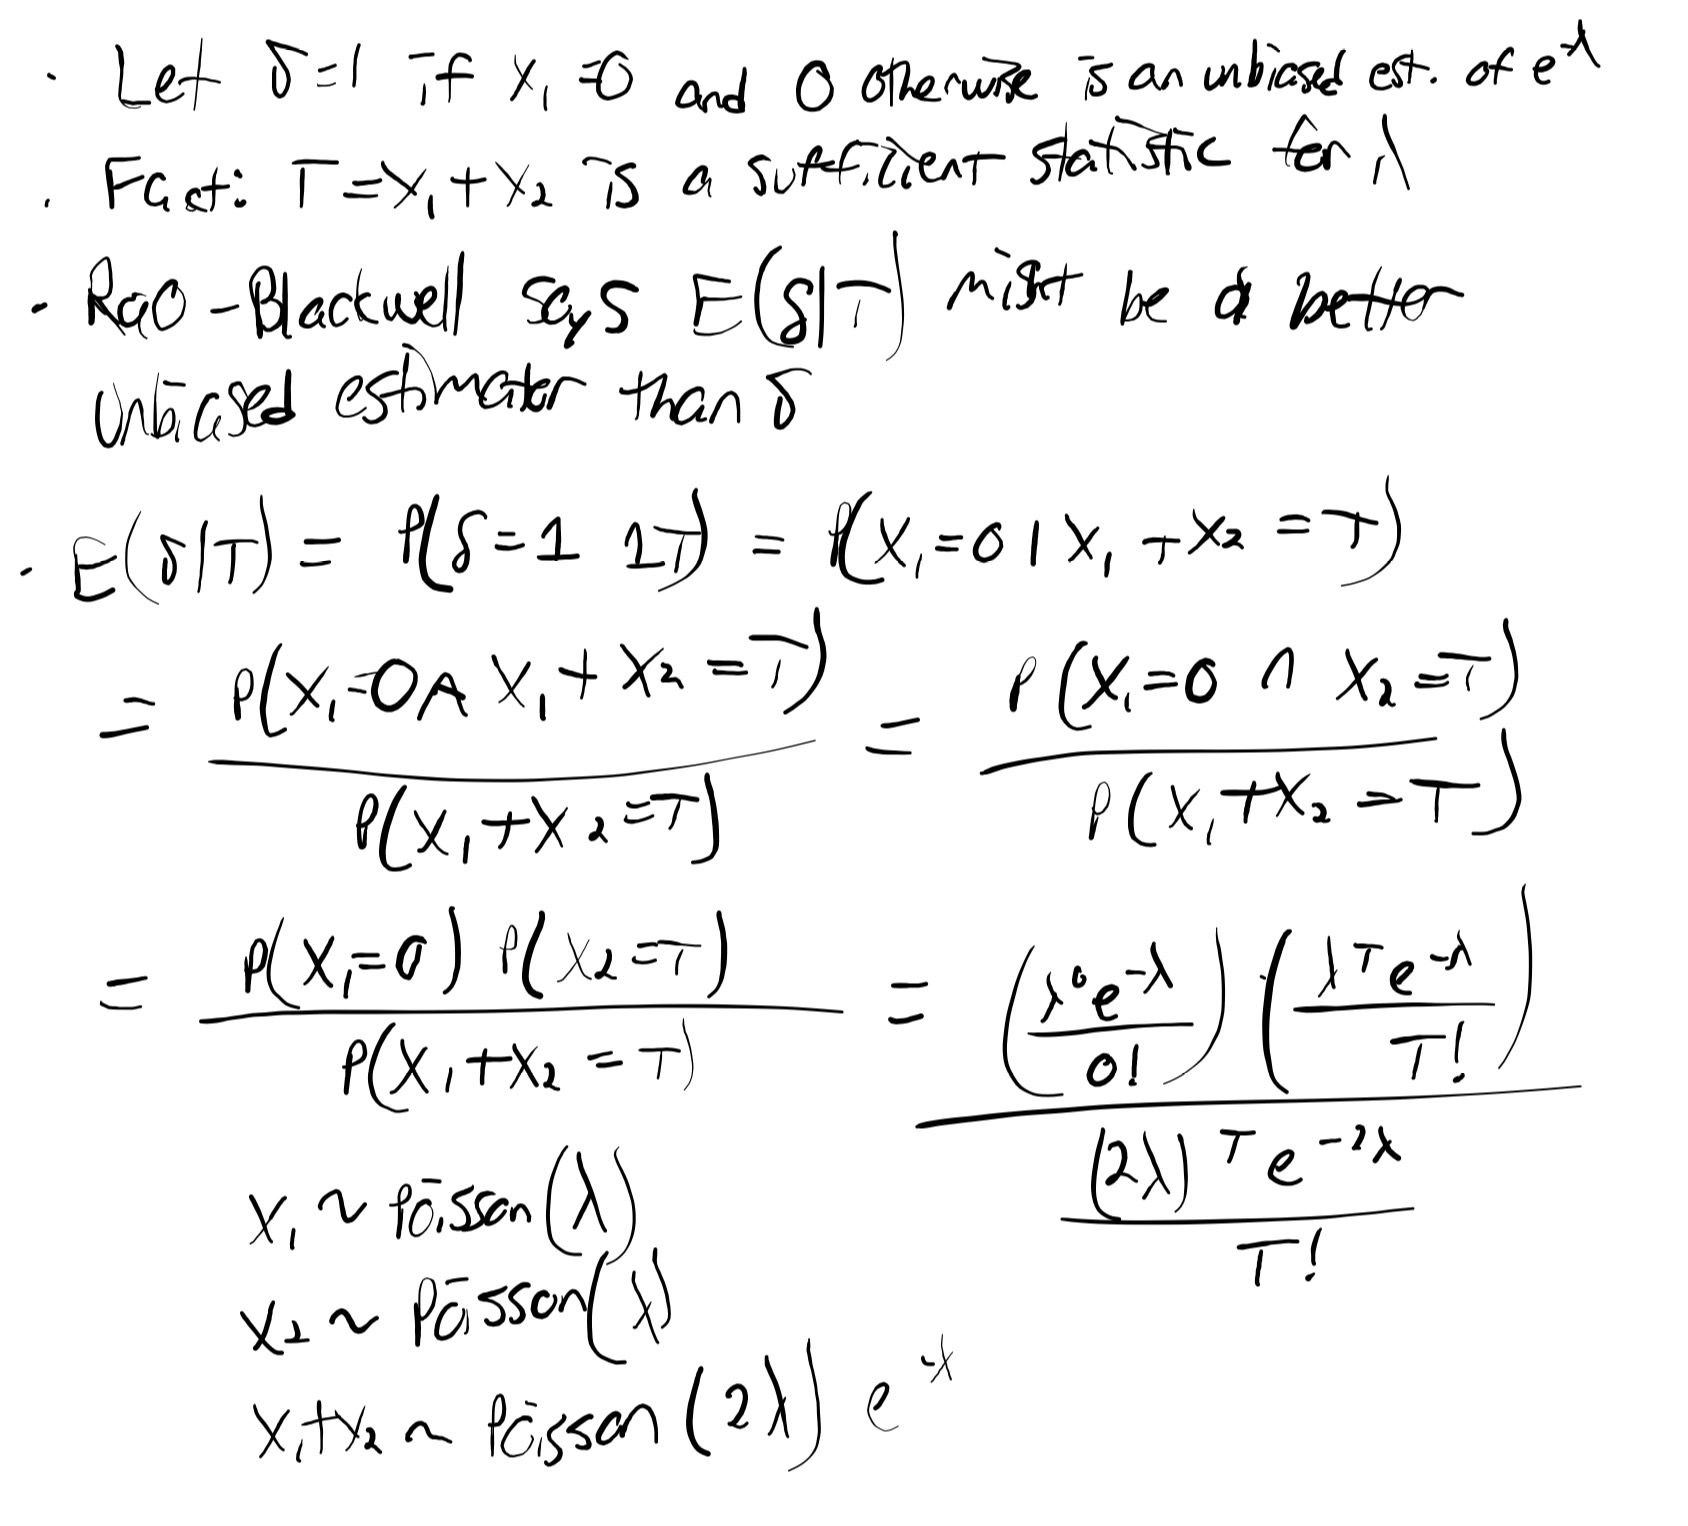 · Let δ=1 if X₁=0 and 0 otherwise is an unbiased est. of e^λ
· Fact: T=X₁+X₂ is a sufficient statistic for λ
· Rao-Blackwell says E(δ|T) might be a better
unbiased estimator than δ
· E(δ|T) = P(δ=1 1T) = P(X₁=0 | X₁+X₂=T)
= P(X₁=0 ∧ X₁+X₂=T) / P(X₁+X₂=T) = P(X₁=0 ∩ X₂=T) / P(X₁+X₂=T)
= P(X₁=0) P(X₂=T) / P(X₁+X₂=T) = (λ⁰e^-λ / 0!) (λ^T e^-λ / T!) / ((2λ)^T e^-2λ / T!)
X₁ ~ Poisson(λ)
X₂ ~ Poisson(λ)
X₁+X₂ ~ Poisson(2λ) e^-λ